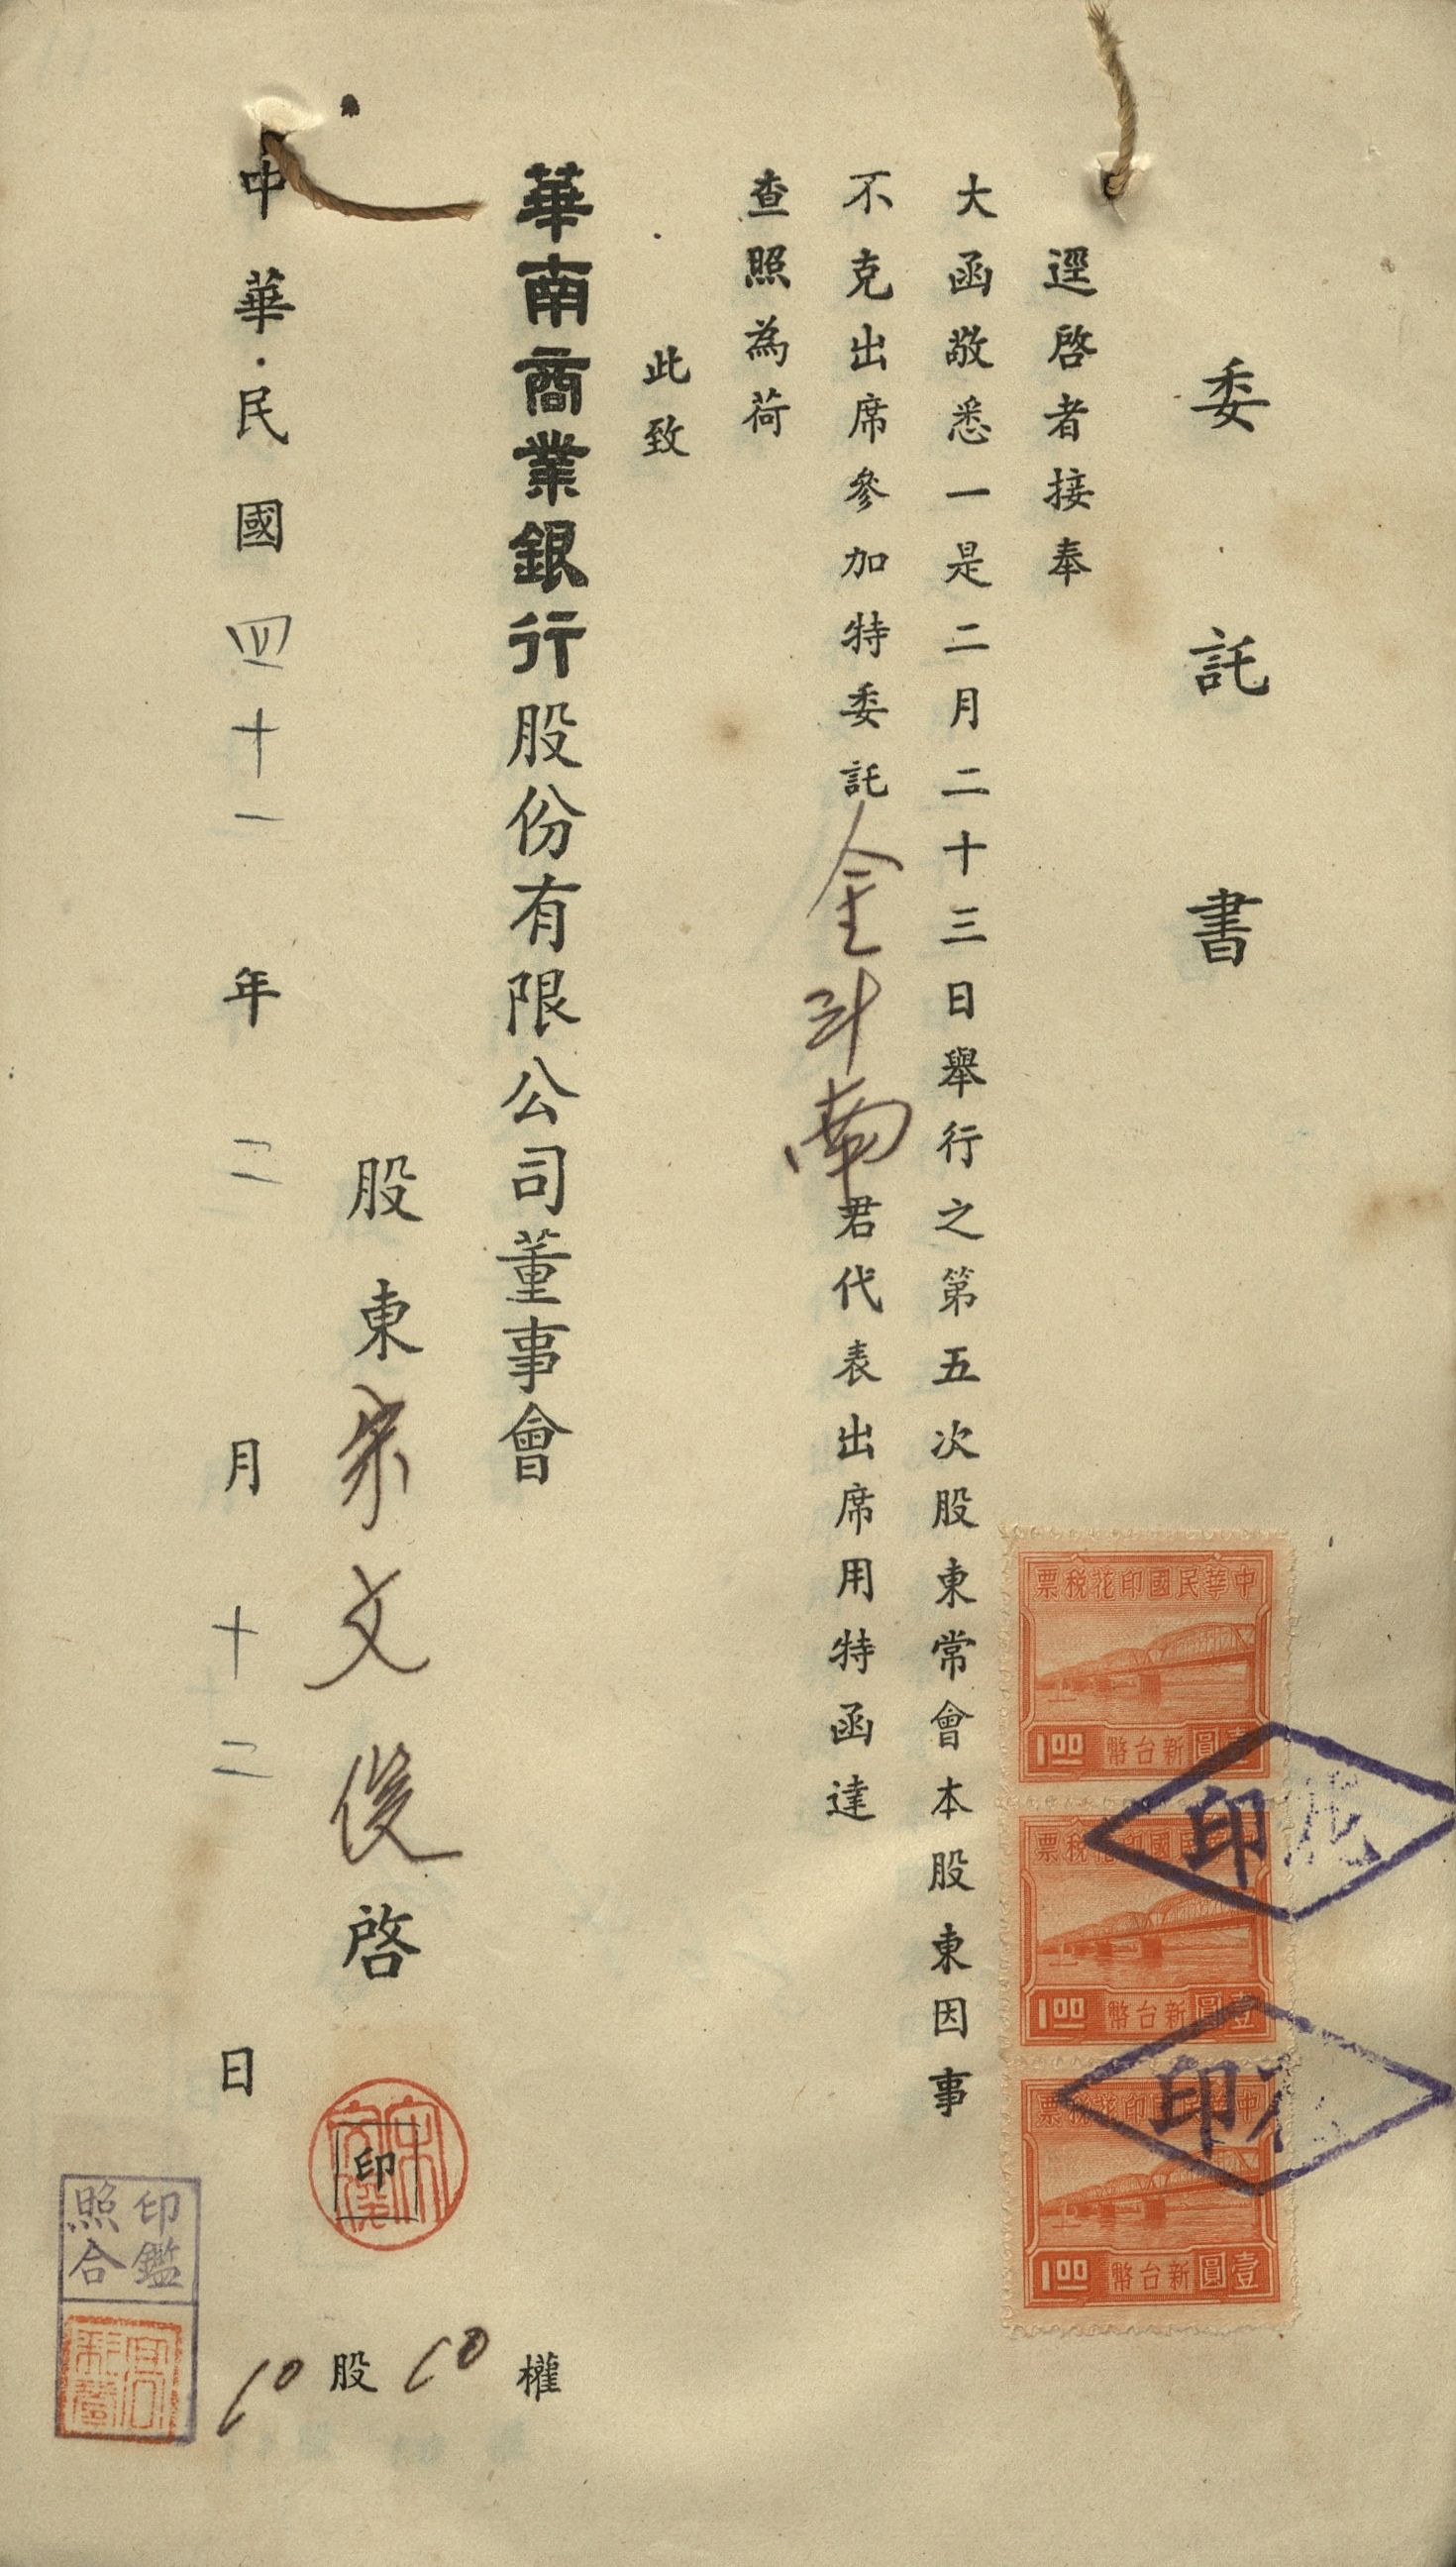 委託書
逕啓者接奉
大函敬悉一是二月二十三日舉行之第五次股東常會本股東因事
不克出席參加特委託金斗南君代表出席用特函達
查照為荷
此致
華南商業銀行股份有限公司董事會
股東宋文俊啓
印
中華民國四十一年二月十二日
10股10權
印鑑
照合
中華民國印花稅票
壹圓新台幣
1.00
中華民國印花稅票
壹圓新台幣
1.00
中華民國印花稅票
壹圓新台幣
1.00
印花
印花